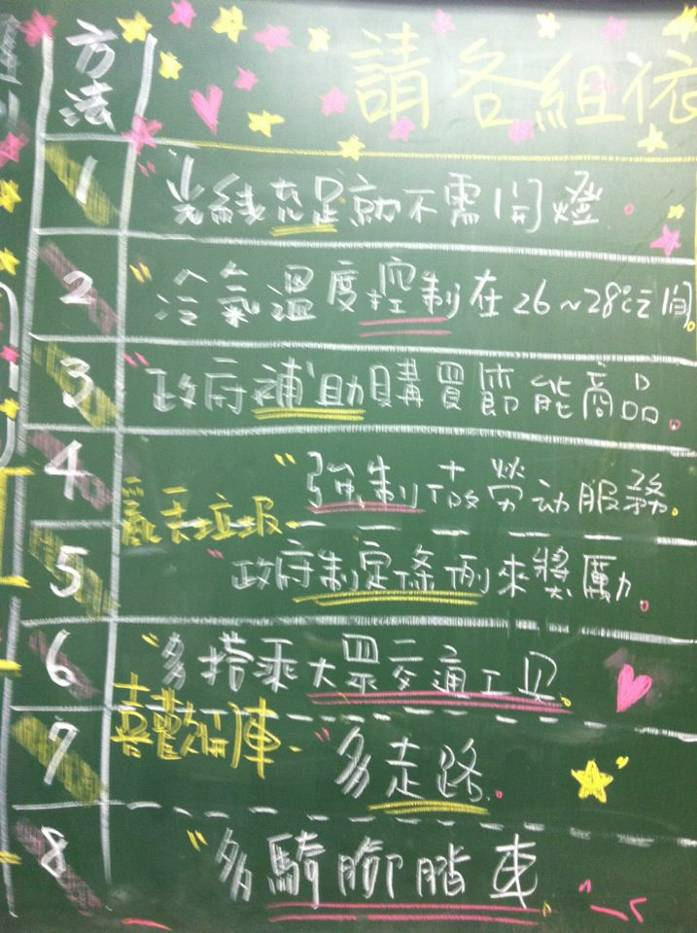 請各組依
方法
1 光線充足就不需開燈。
2 冷氣溫度控制在26~28℃之間。
3 政府補助購買節能商品。
4 強制做勞动服務。
亂丟垃圾
5 政府制定條例來獎勵。
6 多搭乘大眾交通工具。
喜歡開車
7 多走路。
8 多騎腳踏車